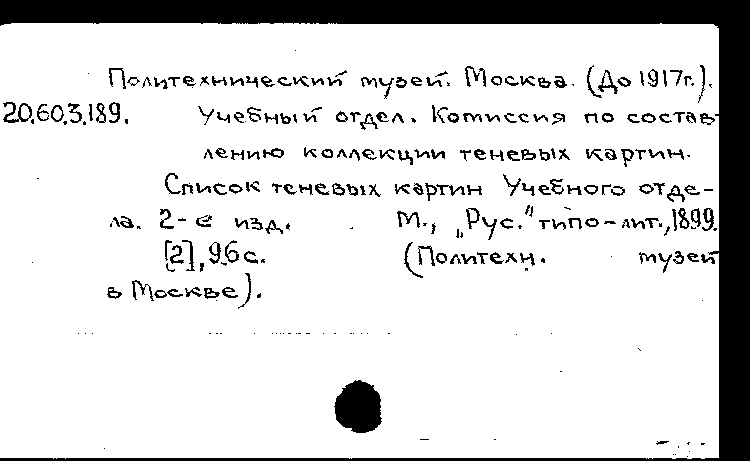 Политехнический музей. Москва. (До 1917г.).
20.60.3.189. Учебный отдел. Комиссия по состав-
лению коллекции теневых картин.
Список теневых картин Учебного отде-
ла. 2-е изд. М., „Рус." типо-лит., 1899.
[2], 96 с. (Политехн. музей
в Москве).